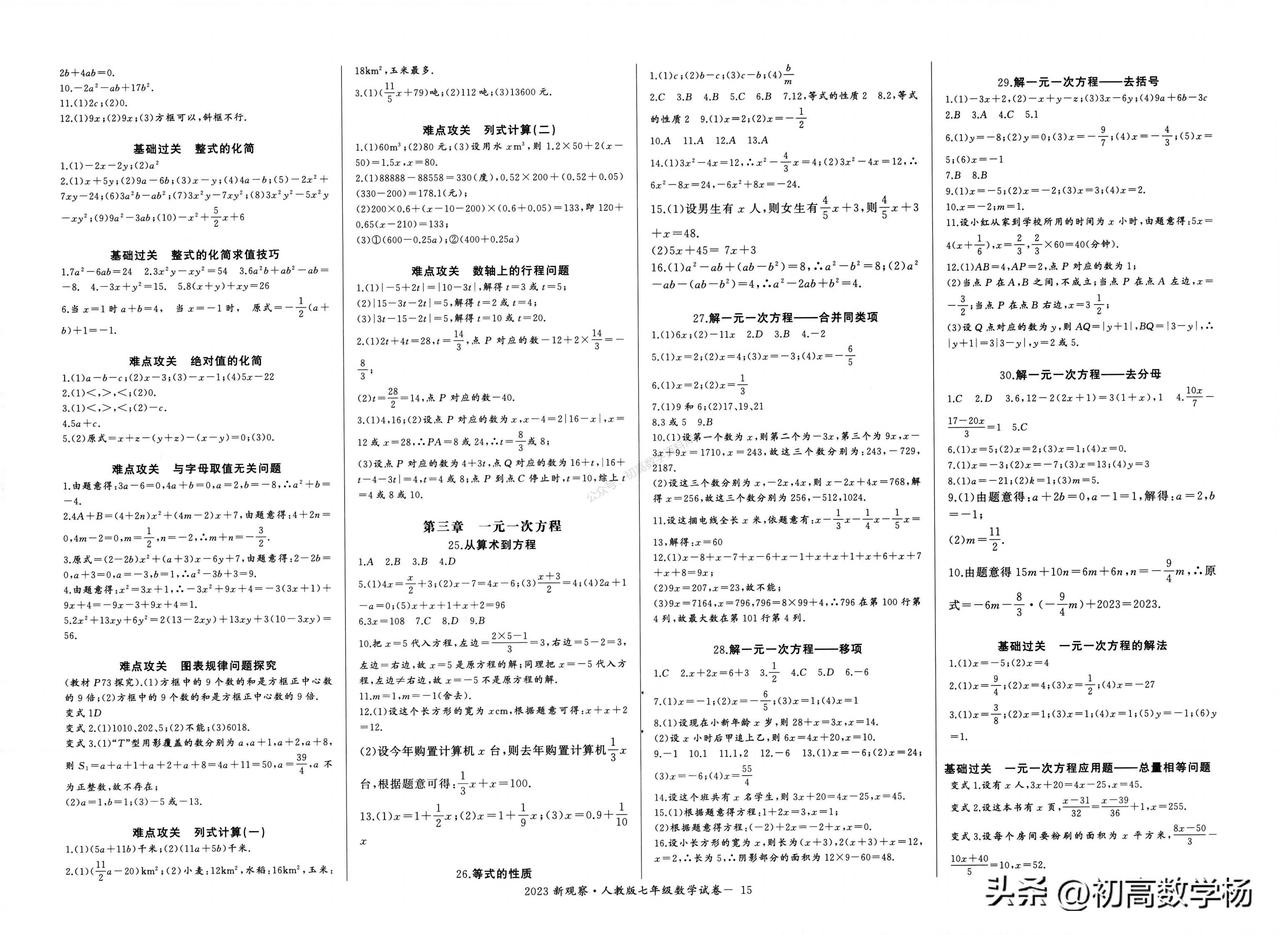 2b+4ab=0.
10.-2a²-ab+17b².
11.(1)2c;(2)0.
12.(1)9x;(2)9x;(3)方框可以,斜框不行.
基础过关 整式的化简
1.(1)-2x-2y;(2)a²
2.(1)x+5y;(2)9a-6b;(3)x-y;(4)4a-b;(5)-2x²+
7xy-24;(6)3a²b-ab²;(7)3x²y-7xy²;(8)3x²y²-5x²y
-xy²;(9)9a²-3ab;(10)-x²+5/2x+6
基础过关 整式的化简求值技巧
1.7a²-6ab=24 2.3x²y-xy²=54 3.6a²b+ab²-ab=
-8. 4.-3x+y²=15. 5.8(x+y)+xy=26
6.当x=1时a+b=4, 当x=-1时, 原式=-1/2(a+
b)+1=-1.
难点攻关 绝对值的化简
1.(1)a-b-c;(2)x-3;(3)-x-1;(4)5x-22
2.(1)<,>,<;(2)0.
3.(1)<,>,<;(2)-c.
4.5a+c.
5.(2)原式=x+z-(y+z)-(x-y)=0;(3)0.
难点攻关 与字母取值无关问题
1.由题意得:3a-6=0,4a+b=0,a=2,b=-8,∴a²+b=
-4.
2.4A+B=(4+2n)x²+(4m-2)x+7,由题意得:4+2n=
0,4m-2=0,m=1/2,n=-2,∴m+n=-3/2.
3.原式=(2-2b)x²+(a+3)x-6y+7,由题意得:2-2b=
0,a+3=0,a=-3,b=1,∴a²-3b+3=9.
4.由题意得:x²=3x+1,∴-3x²+9x+4=-3(3x+1)+
9x+4=-9x-3+9x+4=1.
5.2x²+13xy+6y²=2(13-2xy)+13xy+3(10-3xy)=
56.
难点攻关 图表规律问题探究
(教材P73探究).(1)方框中的9个数的和是方框正中心数
的9倍;(2)方框中的9个数的和是方框正中心数的9倍.
变式1D
变式2.(1)1010、202、5;(2)不能;(3)6018.
变式3.(1)“T”型用影覆盖的数分别为a,a+1,a+2,a+8,
则S₁=a+a+1+a+2+a+8=4a+11=50,a=39/4,a不
为正整数,故不存在;
(2)a=1,b=1;(3)-5或-13.
难点攻关 列式计算(一)
1.(1)(5a+11b)千米;(2)(11a+5b)千米.
2.(1)(11/2a-20)km²;(2)小麦:12km²,水稻:16km²,玉米:
18km²,玉米最多.
3.(1)(11/5x+79)吨;(2)112吨;(3)13600元.
难点攻关 列式计算(二)
1.(1)60m³;(2)80元;(3)设用水xm³,则1.2×50+2(x-
50)=1.5x,x=80.
2.(1)88888-88558=330(度),0.52×200+(0.52+0.05)
(330-200)=178.1(元);
(2)200×0.6+(x-10-200)×(0.6+0.05)=133,即120+
0.65(x-210)=133;
(3)①(600-0.25a);②(400+0.25a)
难点攻关 数轴上的行程问题
1.(1)|-5+2t|=|10-3t|,解得t=3或t=5;
(2)|15-3t-2t|=5,解得t=2或t=4;
(3)|3t-15-2t|=5,解得t=10或t=20.
2.(1)2t+4t=28,t=14/3,点P对应的数-12+2×14/3=-
8/3;
(2)t=28/2=14,点P对应的数-40.
3.(1)4,16;(2)设点P对应的数为x,x-4=2|16-x|,x=
12或x=28,∴PA=8或24,∴t=8/3或8;
(3)设点P对应的数为4+3t,点Q对应的数为16+t,|16+
t-4-3t|=4,t=4或8;点P到点C停止时,t=10,综上t
=4或8或10.
第三章 一元一次方程
25.从算术到方程
1.A 2.B 3.B 4.D
5.(1)4x=x/2+3;(2)x-7=4x-6;(3)x+3/2=4;(4)2a+1
-a=0;(5)x+x+1+x+2=96
6.3x=108 7.C 8.D 9.B
10.把x=5代入方程,左边=2×5-1/3=3,右边=5-2=3,
左边=右边,故x=5是原方程的解;同理把x=-5代入方
程,左边≠右边,故x=-5不是原方程的解.
11.m=1,m=-1(舍去).
12.(1)设这个长方形的宽为xcm,根据题意可得:x+x+2
=12.
(2)设今年购置计算机x台,则去年购置计算机1/3x
台,根据题意可得:1/3x+x=100.
13.(1)x=1+1/2x;(2)x=1+1/9x;(3)x=0.9+1/10
x
26.等式的性质
1.(1)c;(2)b-c;(3)c-b;(4)b/m
2.C 3.B 4.B 5.C 6.B 7.12,等式的性质2 8.2,等式
的性质2 9.(1)x=2;(2)x=-1/2
10.A 11.A 12.A 13.A
14.(1)3x²-4x=12,∴x²-4/3x=4;(2)3x²-4x=12,∴
6x²-8x=24,-6x²+8x=-24.
15.(1)设男生有x人,则女生有4/5x+3,则4/5x+3
+x=48.
(2)5x+45=7x+3
16.(1)a²-ab+(ab-b²)=8,∴a²-b²=8;(2)a²
-ab-(ab-b²)=4,∴a²-2ab+b²=4.
27.解一元一次方程——合并同类项
1.(1)6x;(2)-11x 2.D 3.B 4.-2
5.(1)x=2;(2)x=4;(3)x=-3;(4)x=-6/5
6.(1)x=2;(2)x=1/3
7.(1)9和6;(2)17、19、21
8.3或5 9.B
10.(1)设第一个数为x,则第二个为-3x,第三个为9x,x-
3x+9x=1710,x=243,故这三个数分别为:243,-729,
2187.
(2)设这三个数分别为x,-2x,4x,则x-2x+4x=768,解
得x=256,故这三个数分别为256,-512,1024.
11.设这捆电线全长x米,依题意有:x-1/3x-1/4x-1/5x=
13,解得:x=60
12.(1)x-8+x-7+x-6+x-1+x+x+1+x+6+x+7
+x+8=9x;
(2)9x=207,x=23,故不能;
(3)9x=7164,x=796,796=8×99+4,∴796在第100行第
4列,故最大数在第101行第4列.
28.解一元一次方程——移项
1.C 2.x+2x=6+3 3.1/2 4.C 5.D 6.-6
7.(1)x=-1;(2)x=-6/5;(3)x=1;(4)x=1
8.(1)设现在小新年龄x岁,则28+x=3x,x=14.
(2)设x小时后甲追上乙,则6x=4x+20,x=10.
9.-1 10.1 11.1,2 12.-6 13.(1)x=-6;(2)x=24;
(3)x=-6;(4)x=55/4
14.设这个班共有x名学生,则3x+20=4x-25,x=45.
15.(1)根据题意得方程:1+2x=3,x=1;
(2)根据题意得方程:(-2)+2x=-2+x,x=0.
16.设小长方形的宽为x,则长为(x+3),2(x+3)+x=12,
x=2,∴长为5,∴阴影部分的面积为12×9-60=48.
29.解一元一次方程——去括号
1.(1)-3x+2,(2)-x+y-z;(3)3x-6y;(4)9a+6b-3c
2.B 3.A 4.C 5.1
6.(1)y=-8;(2)y=0;(3)x=-9/7;(4)x=-4/3;(5)x=
5;(6)x=-1
7.B 8.B
9.(1)x=-5;(2)x=-2;(3)x=3;(4)x=2.
10.x=-2;m=1.
11.设小红从家到学校所用的时间为x小时,由题意得:5x=
4(x+1/6),x=2/3,2/3×60=40(分钟).
12.(1)AB=4,AP=2,点P对应的数为1;
(2)当点P在A,B之间,不成立;当点P在点A左边,x=
-3/2;当点P在点B右边,x=3 1/2;
(3)设Q点对应的数为y,则AQ=|y+1|,BQ=|3-y|,∴
|y+1|=3|3-y|,y=2或5.
30.解一元一次方程——去分母
1.C 2.D 3.6,12-2(2x+1)=3(1+x),1 4.10x/7-
17-20x/3=1 5.C
6.(1)x=5;(2)x=2;(3)x=1;(4)x=0.
7.(1)x=-3;(2)x=-7;(3)x=13;(4)y=3
8.(1)a=-21;(2)k=1;(3)m=5.
9.(1)由题意得:a+2b=0,a-1=1,解得:a=2,b
=-1;
(2)m=11/2.
10.由题意得15m+10n=6m+6n,n=-9/4m,∴原
式=-6m-8/3·(-9/4m)+2023=2023.
基础过关 一元一次方程的解法
1.(1)x=-5;(2)x=4
2.(1)x=9/4;(2)x=4;(3)x=1/2;(4)x=-27
3.(1)x=3/8;(2)x=1;(3)x=1;(4)x=1;(5)y=-1;(6)y
=1.
基础过关 一元一次方程应用题——总量相等问题
变式1.设有x人,3x+20=4x-25,x=45.
变式2.设这本书有x页,x-31/32=x-39/36+1,x=255.
变式3.设每个房间要粉刷的面积为x平方米,8x-50/3-
10x+40/5=10,x=52.
2023 新观察·人教版七年级数学试卷— 15
头条 @初高数学杨